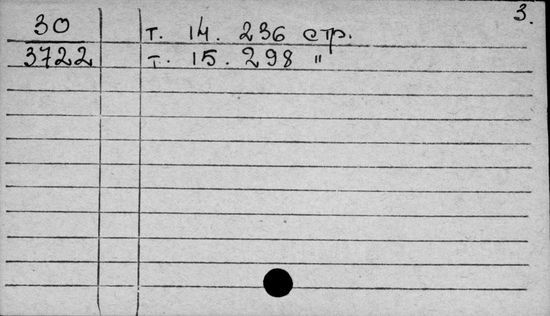 3.
30 т. 14. 236 стр.
3722 т. 15. 298 "